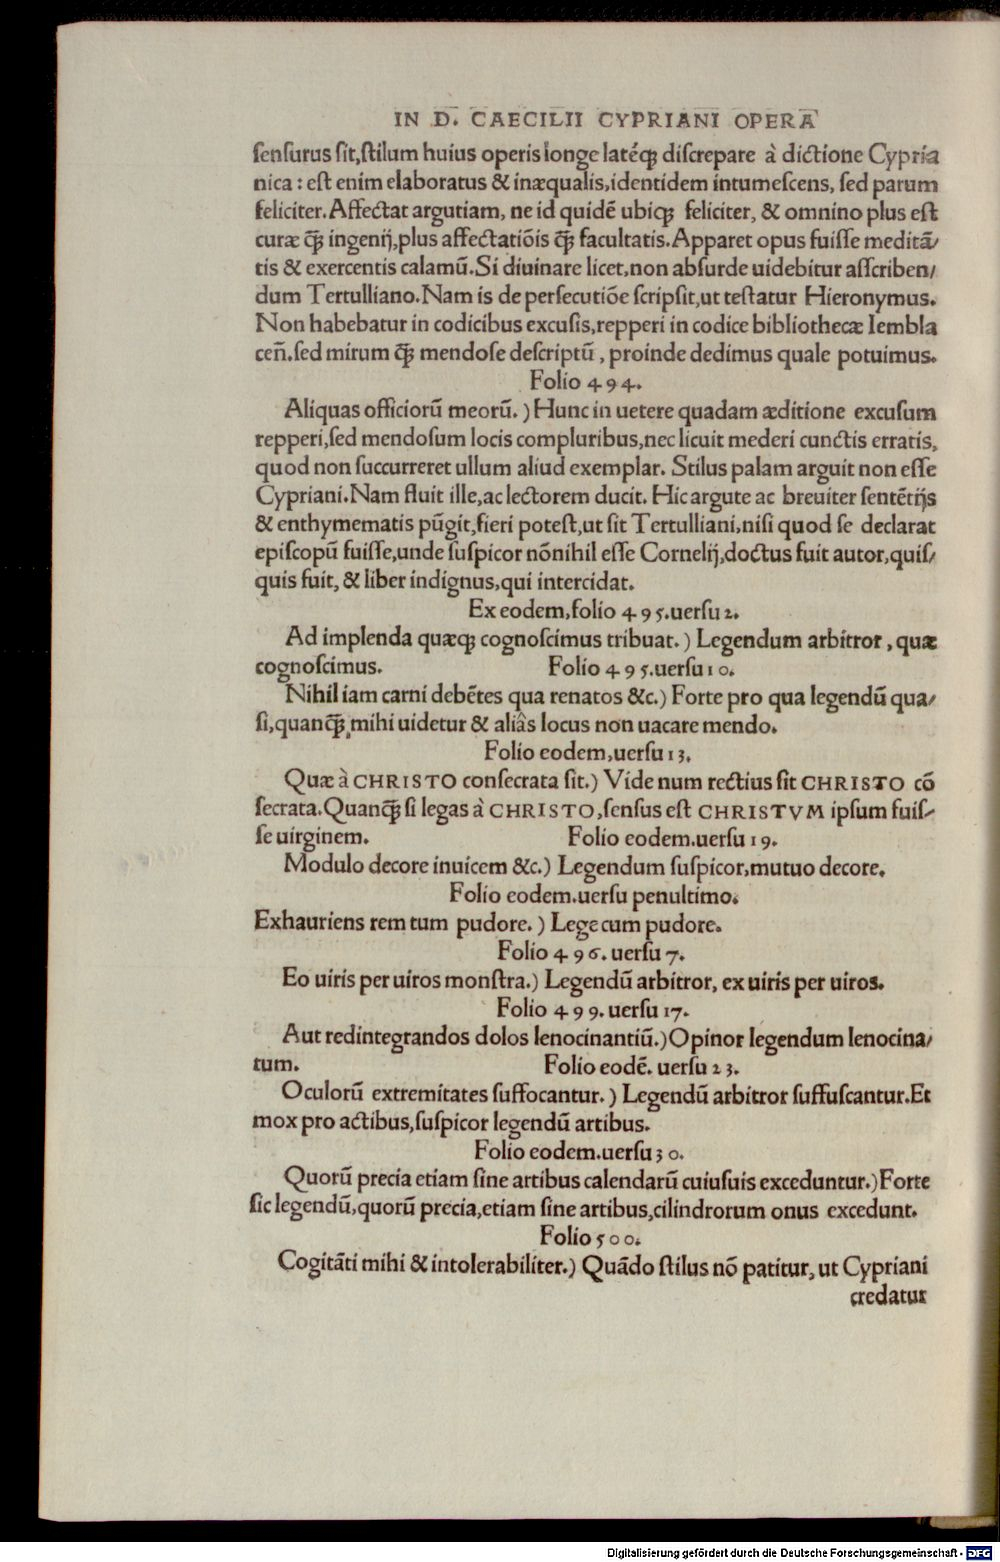 IN D. CAECILII CYPRIANI OPERA
ſenſurus ſit,ſtilum huius operis longe latéq; diſcrepare à dictione Cypria
nica : eſt enim elaboratus & inæqualis,identidem intumeſcens, ſed parum
feliciter.Affectat argutiam, ne id quidē ubiq; feliciter, & omnino plus eſt
curæ q̄; ingenij,plus affectatiōis q̄; facultatis.Apparet opus fuiſſe meditā/
tis & exercentis calamū.Si diuinare licet,non abſurde uidebitur aſſcriben/
dum Tertulliano.Nam is de perſecutiōe ſcripſit,ut teſtatur Hieronymus.
Non habebatur in codicibus excuſis,repperi in codice bibliothecæ Iembla
ceñ.ſed mirum q̄; mendoſe deſcriptū , proinde dedimus quale potuimus.
Folio 494.
Aliquas officiorū meorū. ) Hunc in uetere quadam æditione excuſum
repperi,ſed mendoſum locis compluribus,nec licuit mederi cunctis erratis,
quod non ſuccurreret ullum aliud exemplar. Stilus palam arguit non eſſe
Cypriani.Nam fluit ille,ac lectorem ducit. Hic argute ac breuiter ſentētijs
& enthymematis pūgit,fieri poteſt,ut ſit Tertulliani,niſi quod ſe declarat
epiſcopū fuiſſe,unde ſuſpicor nōnihil eſſe Cornelij,doctus fuit autor,quiſ/
quis fuit, & liber indignus,qui intercidat.
Ex eodem,folio 495.uerſu 2.
Ad implenda quæq; cognoſcimus tribuat. ) Legendum arbitror , quæ
cognoſcimus. Folio 495.uerſu 10.
Nihil iam carni debētes qua renatos &c.) Forte pro qua legendū qua/
ſi,quanq̄; mihi uidetur & aliâs locus non uacare mendo.
Folio eodem,uerſu 13.
Quæ à CHRISTO conſecrata ſit.) Vide num rectius ſit CHRISTO cō
ſecrata.Quanq̄; ſi legas à CHRISTO,ſenſus eſt CHRISTVM ipſum fuiſ-
ſe uirginem. Folio eodem.uerſu 19.
Modulo decore inuicem &c.) Legendum ſuſpicor,mutuo decore.
Folio eodem.uerſu penultimo.
Exhauriens rem tum pudore. ) Lege cum pudore.
Folio 496. uerſu 7.
Eo uiris per uiros monſtra.) Legendū arbitror, ex uiris per uiros.
Folio 499. uerſu 17.
Aut redintegrandos dolos lenocinantiū.)Opinor legendum lenocina/
tum. Folio eodē. uerſu 23.
Oculorū extremitates ſuffocantur. ) Legendū arbitror ſuffuſcantur.Et
mox pro actibus,ſuſpicor legendū artibus.
Folio eodem.uerſu 30.
Quorū precia etiam ſine artibus calendarū cuiuſuis exceduntur.)Forte
ſic legendū,quorū precia,etiam ſine artibus,cilindrorum onus excedunt.
Folio 500.
Cogitāti mihi & intolerabiliter.) Quādo ſtilus nō patitur, ut Cypriani
credatur
Digitalisierung gefördert durch die Deutsche Forschungsgemeinschaft - DFG